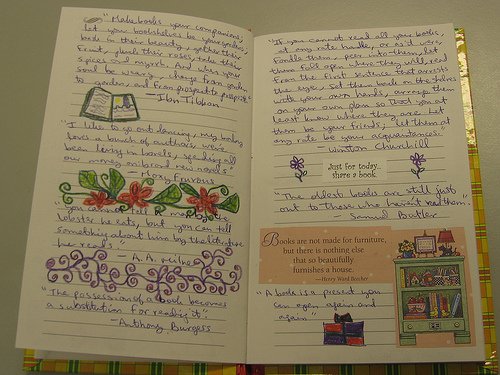 "Make books your companions,
let your bookshelves be your gardens,
bask in their beauty, gather their
fruit, pluck their roses, take their
spices and myrrh. And when your
soul be weary, change from garden
to garden, and from prospect to prospect."
— Ibn Tibbon
"I like to go out dancing, my baby
loves a bunch of authors. We've
been livin' in hovels, spending all
our money on brand new novels."
— Moxy Früvous
"You cannot tell a man by the
lobster he eats, but you can tell
something about him by the literature
he reads."
— A.A. Milne
"The possession of a book becomes
a substitution for reading it."
— Anthony Burgess
"If you cannot read all your books,
at any rate handle, or as it were,
fondle them, peer into them, let
them fall open where they will, read
from the first sentence that arrests
the eye, set them back on the shelves
with your own hands, arrange them
on your own plan so that you at
least know where they are. Let
them be your friends; let them at
any rate be your acquaintances."
— Winston Churchill
Just for today..
share a book.
"The oldest books are still just
out to those who haven't read them."
Samuel Butler
Books are not made for furniture,
but there is nothing else
that so beautifully
furnishes a house.
—Henry Ward Beecher
"A book is a present you
can open again and
again"